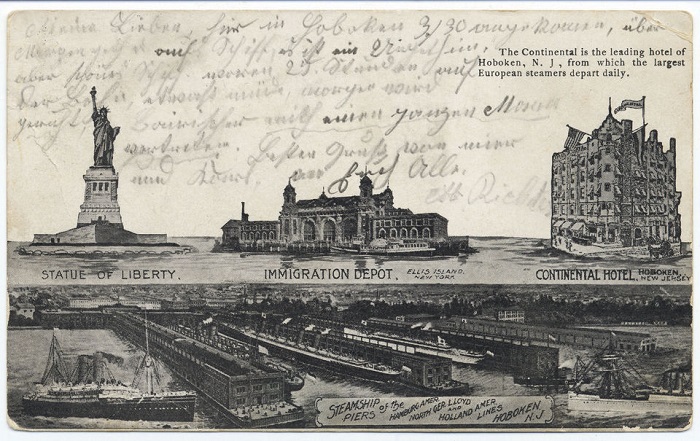 Meine Lieben, hier in Hoboken 3/30 angekommen, über
Morgen geht auf Schiff, es ist ein
aber schöne waren 25 Stunden auf
der Bahn, etwas müde, morgen wird
mit einen ganzen Mann
vertreiben. Besten Gruß von mier
und an Euch Alle.
The Continental is the leading hotel of
Hoboken, N. J., from which the largest
European steamers depart daily.
CONTINENTAL
STATUE OF LIBERTY.
IMMIGRATION DEPOT, ELLIS ISLAND, NEW YORK
CONTINENTAL HOTEL, HOBOKEN, NEW JERSEY
STEAMSHIP PIERS of the HAMBURG-AMER. NORTH GER. LLOYD and HOLLAND AMER. LINES HOBOKEN N.J.